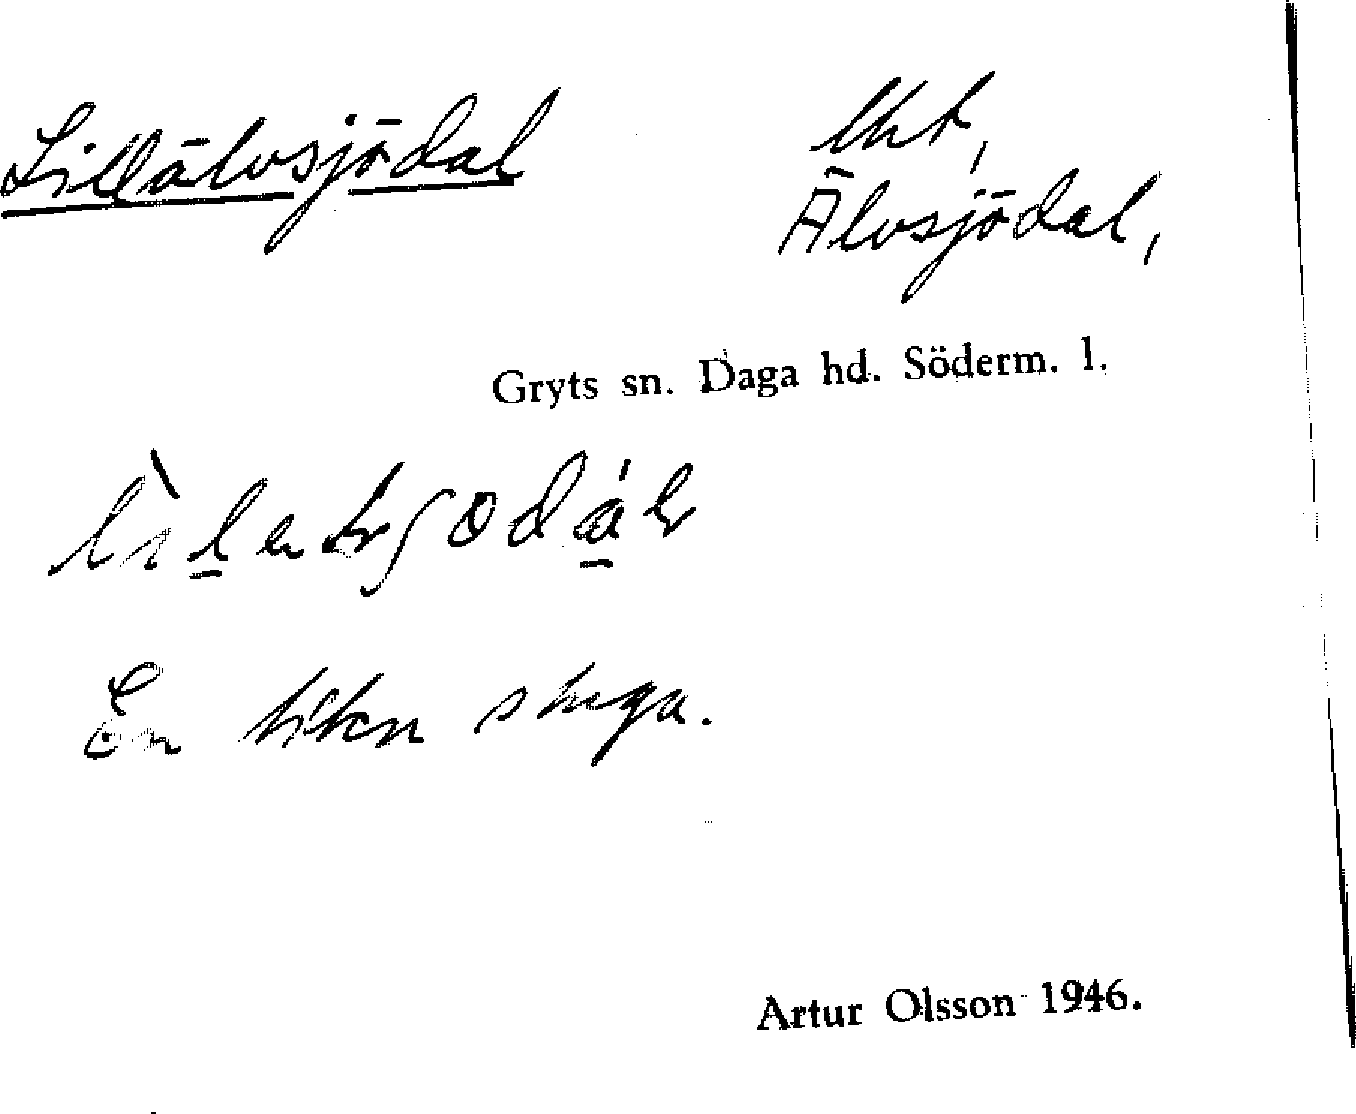 Lillälvsjödal
Uht,
Älvsjödal,
Gryts sn. Daga hd. Söderm. l.
En liten stuga.
Artur Olsson 1946.